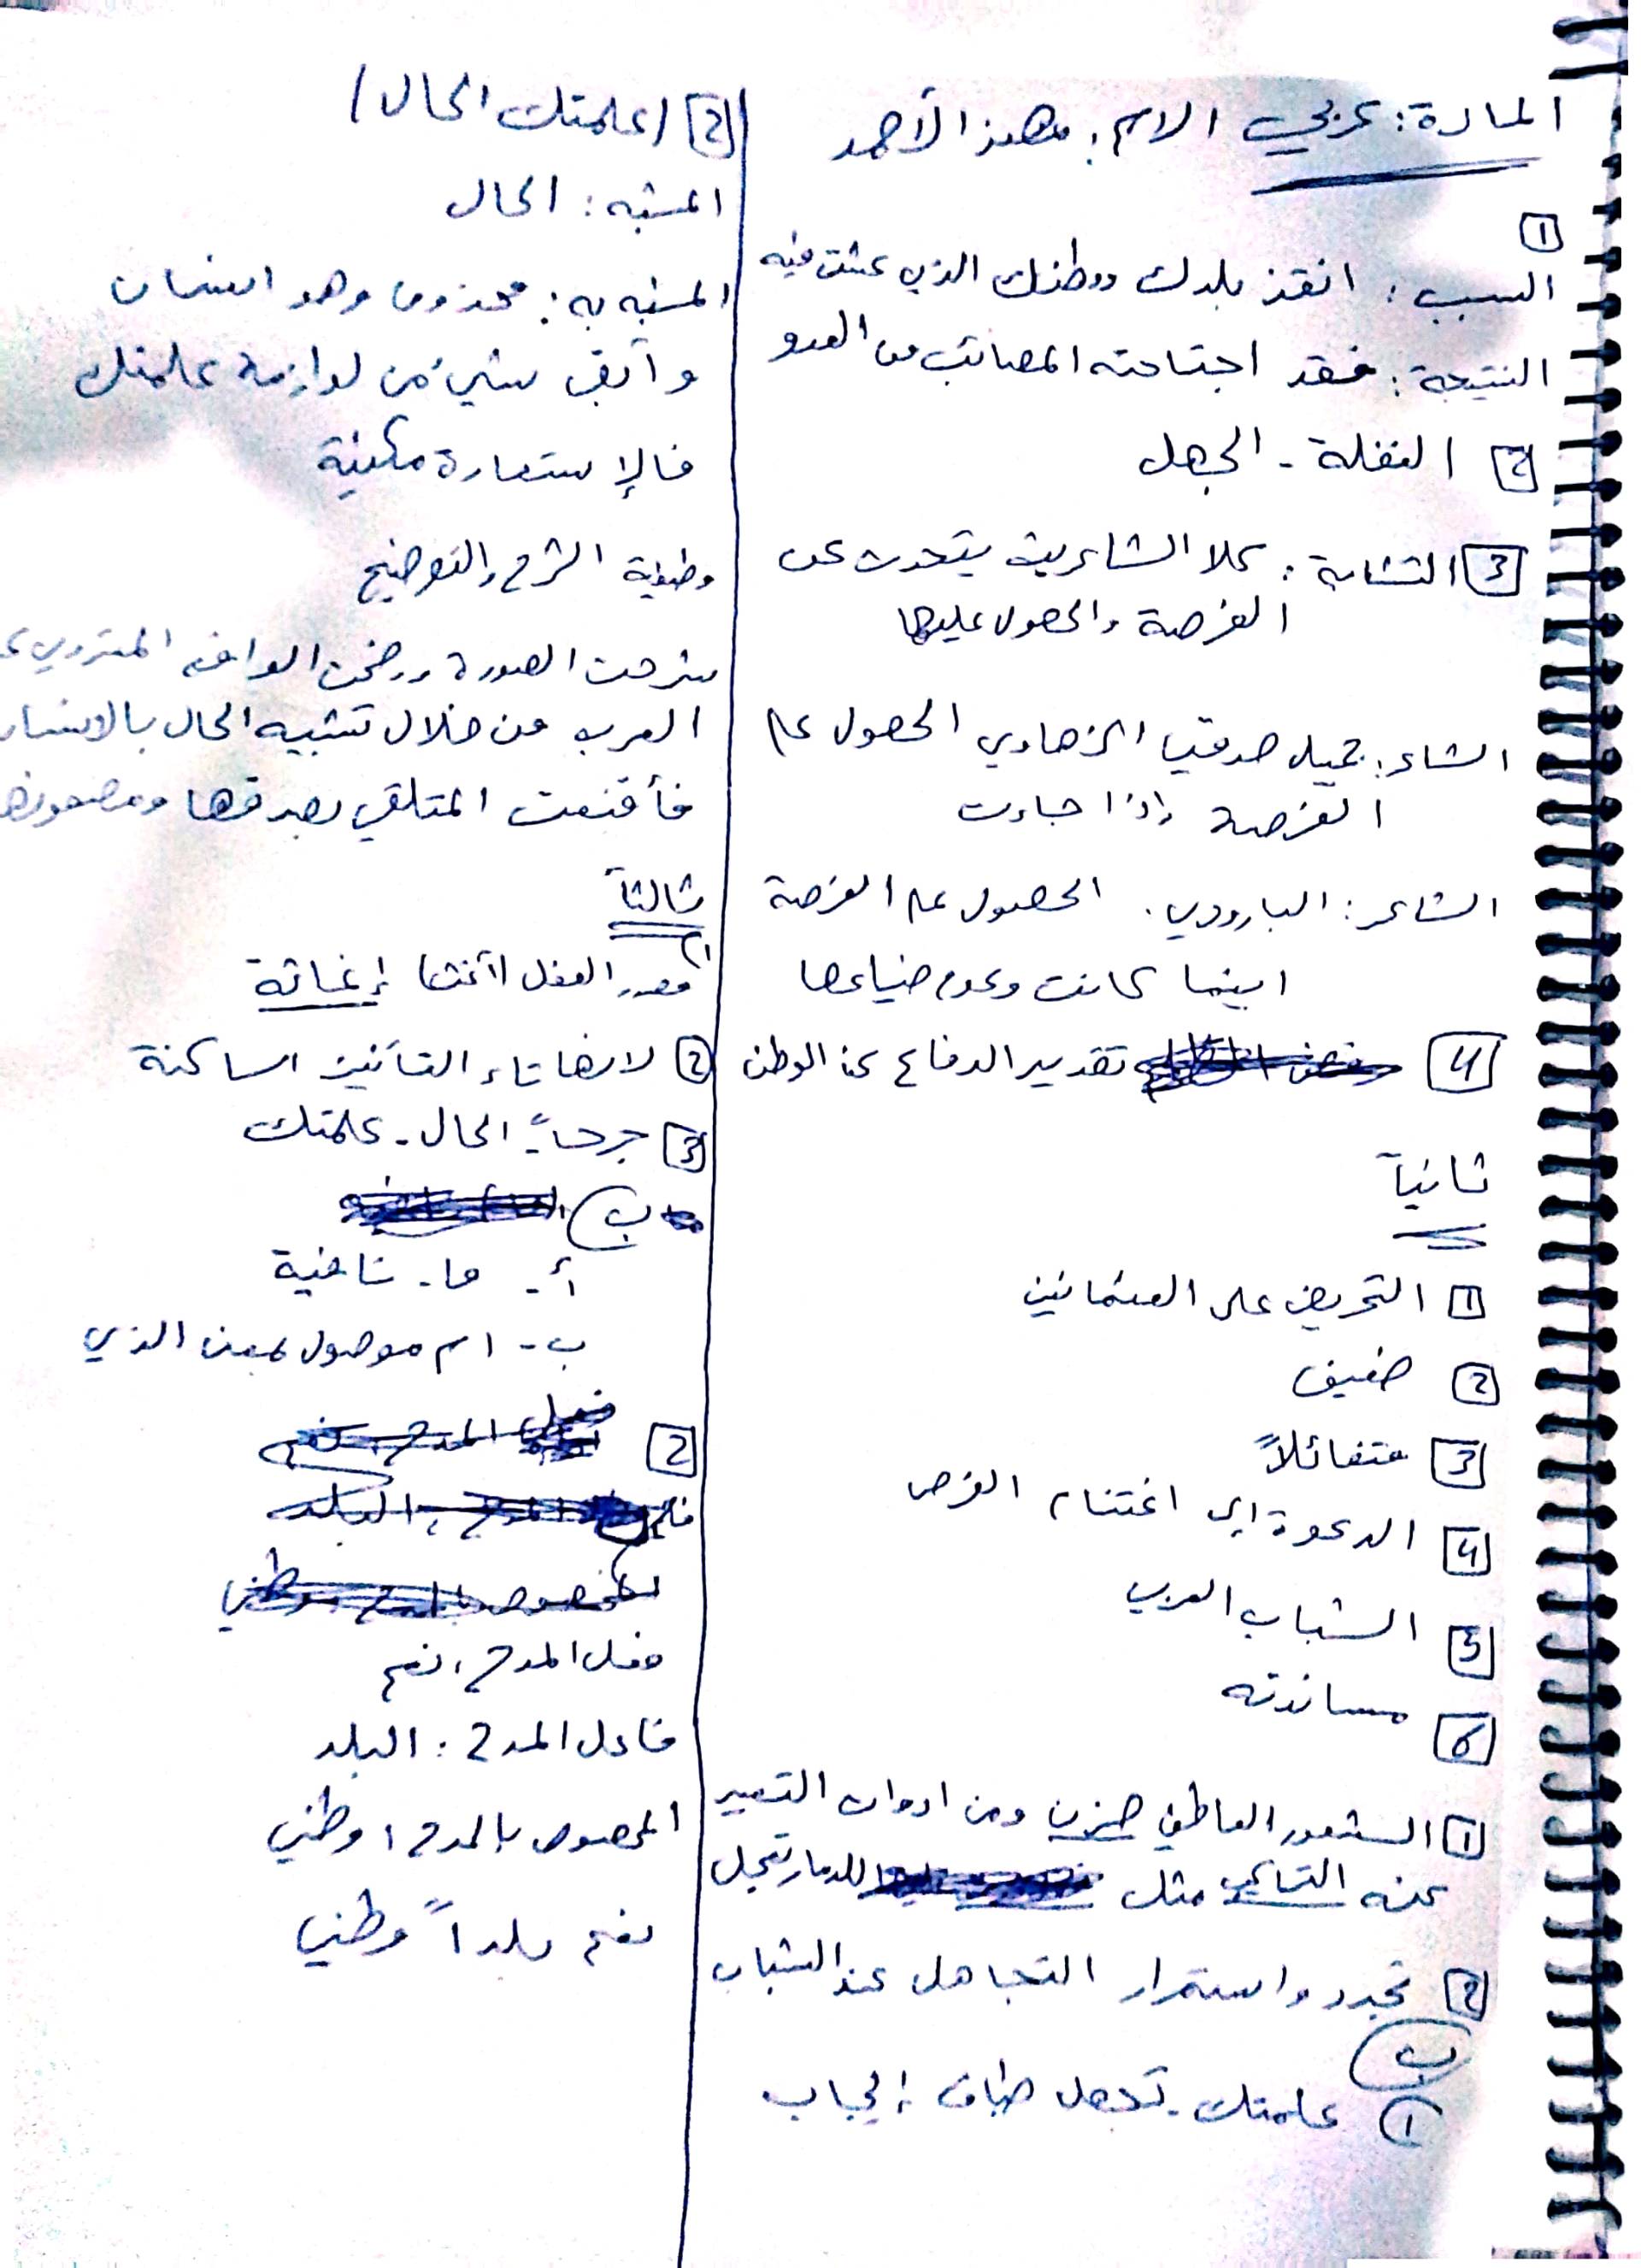 المادة: عربي الاسم: مهند الأحمد
1
السبب: انقذ بلدك ووطنك الذي عشت فيه
النتيجة: فقد اجتاحته المصائب من العدو
2 الغفلة - الجهل
3 التشابه: كلا الشاعرين يتحدث عن
الفرصة والحصول عليها
الشاعر: جميل صدقي الزهاوي الحصول على
الفرصة إذا جاءت
الشاعر: البارودي. الحصول على الفرصة
اينما كانت وعدم ضياعها
4 تقدير الدفاع عن الوطن
ثانياً
1 التحريض على العثمانيين
2 ضعيف
3 متفائلاً
4 الدعوة إلى اغتنام الفرص
5 الشباب العربي
6 مساندته
1 الشعور العاطفي حزن ومن ادوات التعبير
عنه التراكيب مثل للدمار تعجل
2 تجدد واستمرار التجاهل عند الشباب
ب
1 علمتك - تجهل طباق إيجاب
2 (علمتك الحال)
المشبه: الحال
المشبه به: محذوف وهو انسان
وأبقى شيء من لوازمه علمتك
فالإستعارة مكنية
وظيفة الشرح والتوضيح
شرحت الصورة ووضحت الواقع المتردي
العرب من خلال تشبيه الحال بالانسان
فأقنعت المتلقي بصدقها ومضمونها
ثالثاً
1) مصدر الفعل (أغث) إغاثة
2 لانها تاء التأنيث الساكنة
3 الحال - علمتك
ب
أ - ما - نافية
ب - اسم موصول بمعنى الذي
2
فعل المدح: نعم
فاعل المدح: البلد
المخصوص بالمدح: وطني
نعم بلداً وطني